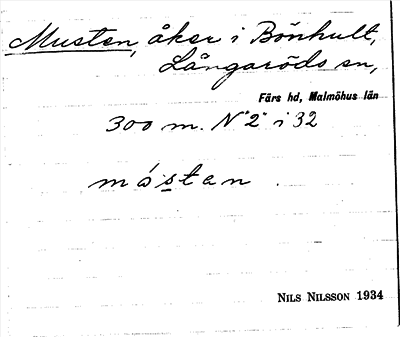 Musten, åker i Bönhult,
Långaröds sn,
Färs hd, Malmöhus län
300 m. N "2" i 32
móstan
NILS NILSSON 1934